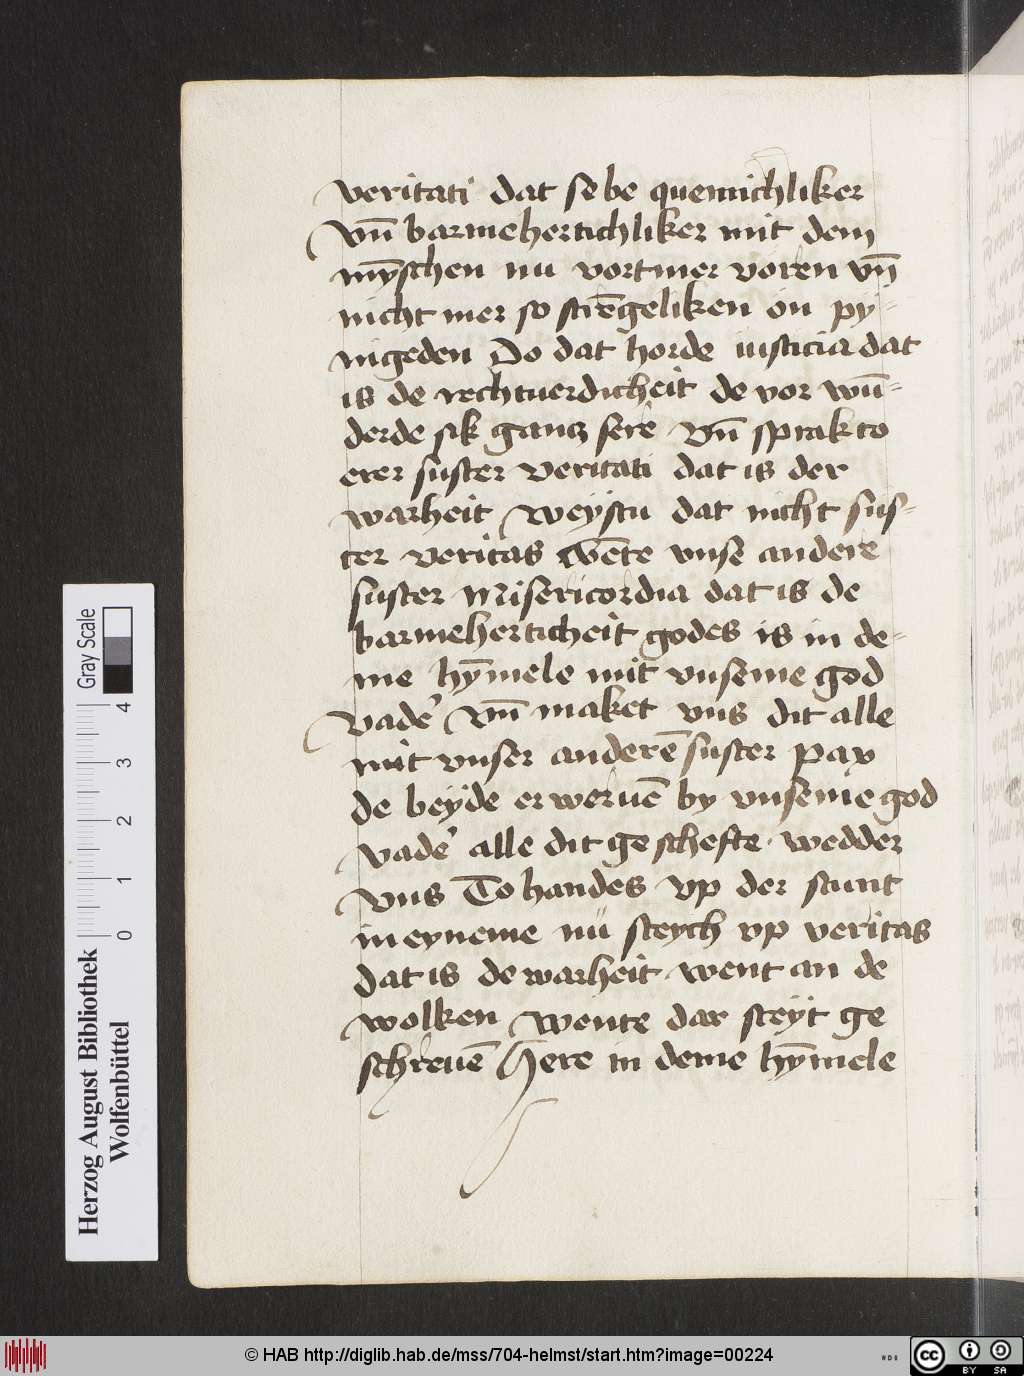 veritati dat se be quemichliker
vn̄ barmehertichliker mit dem
mȳschen nu vortmer voren vn̄
nicht mer so strēgeliken ón py-
nigeden Do dat horde iusticia dat
is de rechtuerdicheit de vor wū-
derde sik gancz sere vn̄ sprak to
erer suster veritati dat is der
warheit weystu dat nicht sus-
ter veritas wēte vnse andere
suster Misericordia dat is de
barmeherticheit godes is in de-
me hȳmele mit vnseme god
vade' vn̄ maket vns dit alle
mit vnser anderē suster pax
de beyde er weruē by vnseme god
vade' alle dit ge schefte wedder
vns To handes vp der stunt
in eyneme nu steych vp veritas
dat is de warheit went an de
wolken wente dar steyt ge
schreuē Here in deme hȳmele
Gray Scale
4
3
2
1
0
Herzog August Bibliothek
Wolfenbüttel
© HAB http://diglib.hab.de/mss/704-helmst/start.htm?image=00224
cc
BY SA